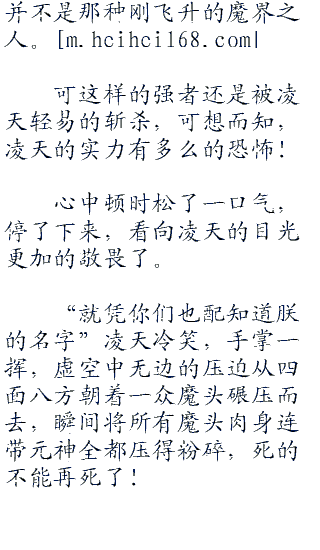 并不是那种刚飞升的魔界之
人。[m.hcihci168.com|
可这样的强者还是被凌
天轻易的斩杀，可想而知，
凌天的实力有多么的恐怖！
心中顿时松了一口气，
停了下来，看向凌天的目光
更加的敬畏了。
“就凭你们也配知道朕
的名字”凌天冷笑，手掌一
挥，虚空中无边的压迫从四
面八方朝着一众魔头碾压而
去，瞬间将所有魔头肉身连
带元神全都压得粉碎，死的
不能再死了！